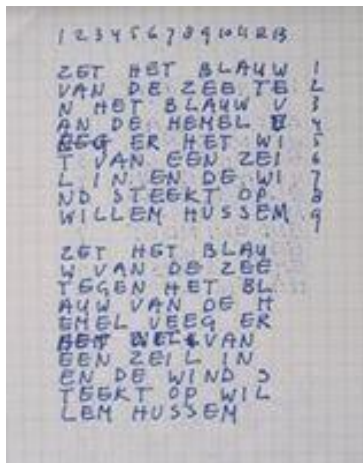 1 2 3 4 5 6 7 8 9 10 11 12 13
ZET HET BLAUW 1
VAN DE ZEE TE 2
N HET BLAUW V 3
AN DE HEMEL V 4
EEG ER HET WI 5
T VAN EEN ZEI 6
L IN EN DE WI 7
ND STEEKT OP 8
WILLEM HUSSEM 9
ZET HET BLAU
W VAN DE ZEE
TEGEN HET BL
AUW VAN DE H
EMEL VEEG ER
HET VAN
EEN ZEIL IN
EN DE WIND S
TEEKT OP WIL
LEM HUSSEM